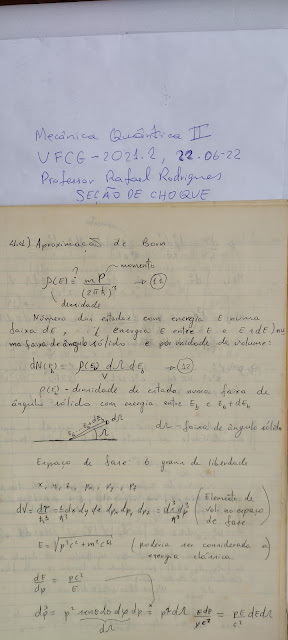 Mecânica Quântica II
UFCG - 2021.2, 22-06-22
Professor Rafael Rodrigues
SEÇÃO DE CHOQUE
Aproximação de Born
momento
ρ(E) = mP / (2πħ)³ → (11)
densidade
Número dos estados com energia E numa
faixa dE, (energia E entre E e E+dE) nu
ma faixa de ângulo sólido e por unidade de volume:
→ (12)
ρ(E_b) - densidade de estado numa faixa de
ângulo sólido com energia entre E_b e E_b + dE_b
dΩ - faixa de ângulo sólido
dΩ
Espaço de fase: 6 graus de liberdade
x, y, z, p_x, p_y, p_z
(Elemento de
vol. no espaço
de fase)
E = √(p²c² + m²c⁴) (poderia ser considerada a
energia clássica)
dE/dp = pc²/E
dΩ